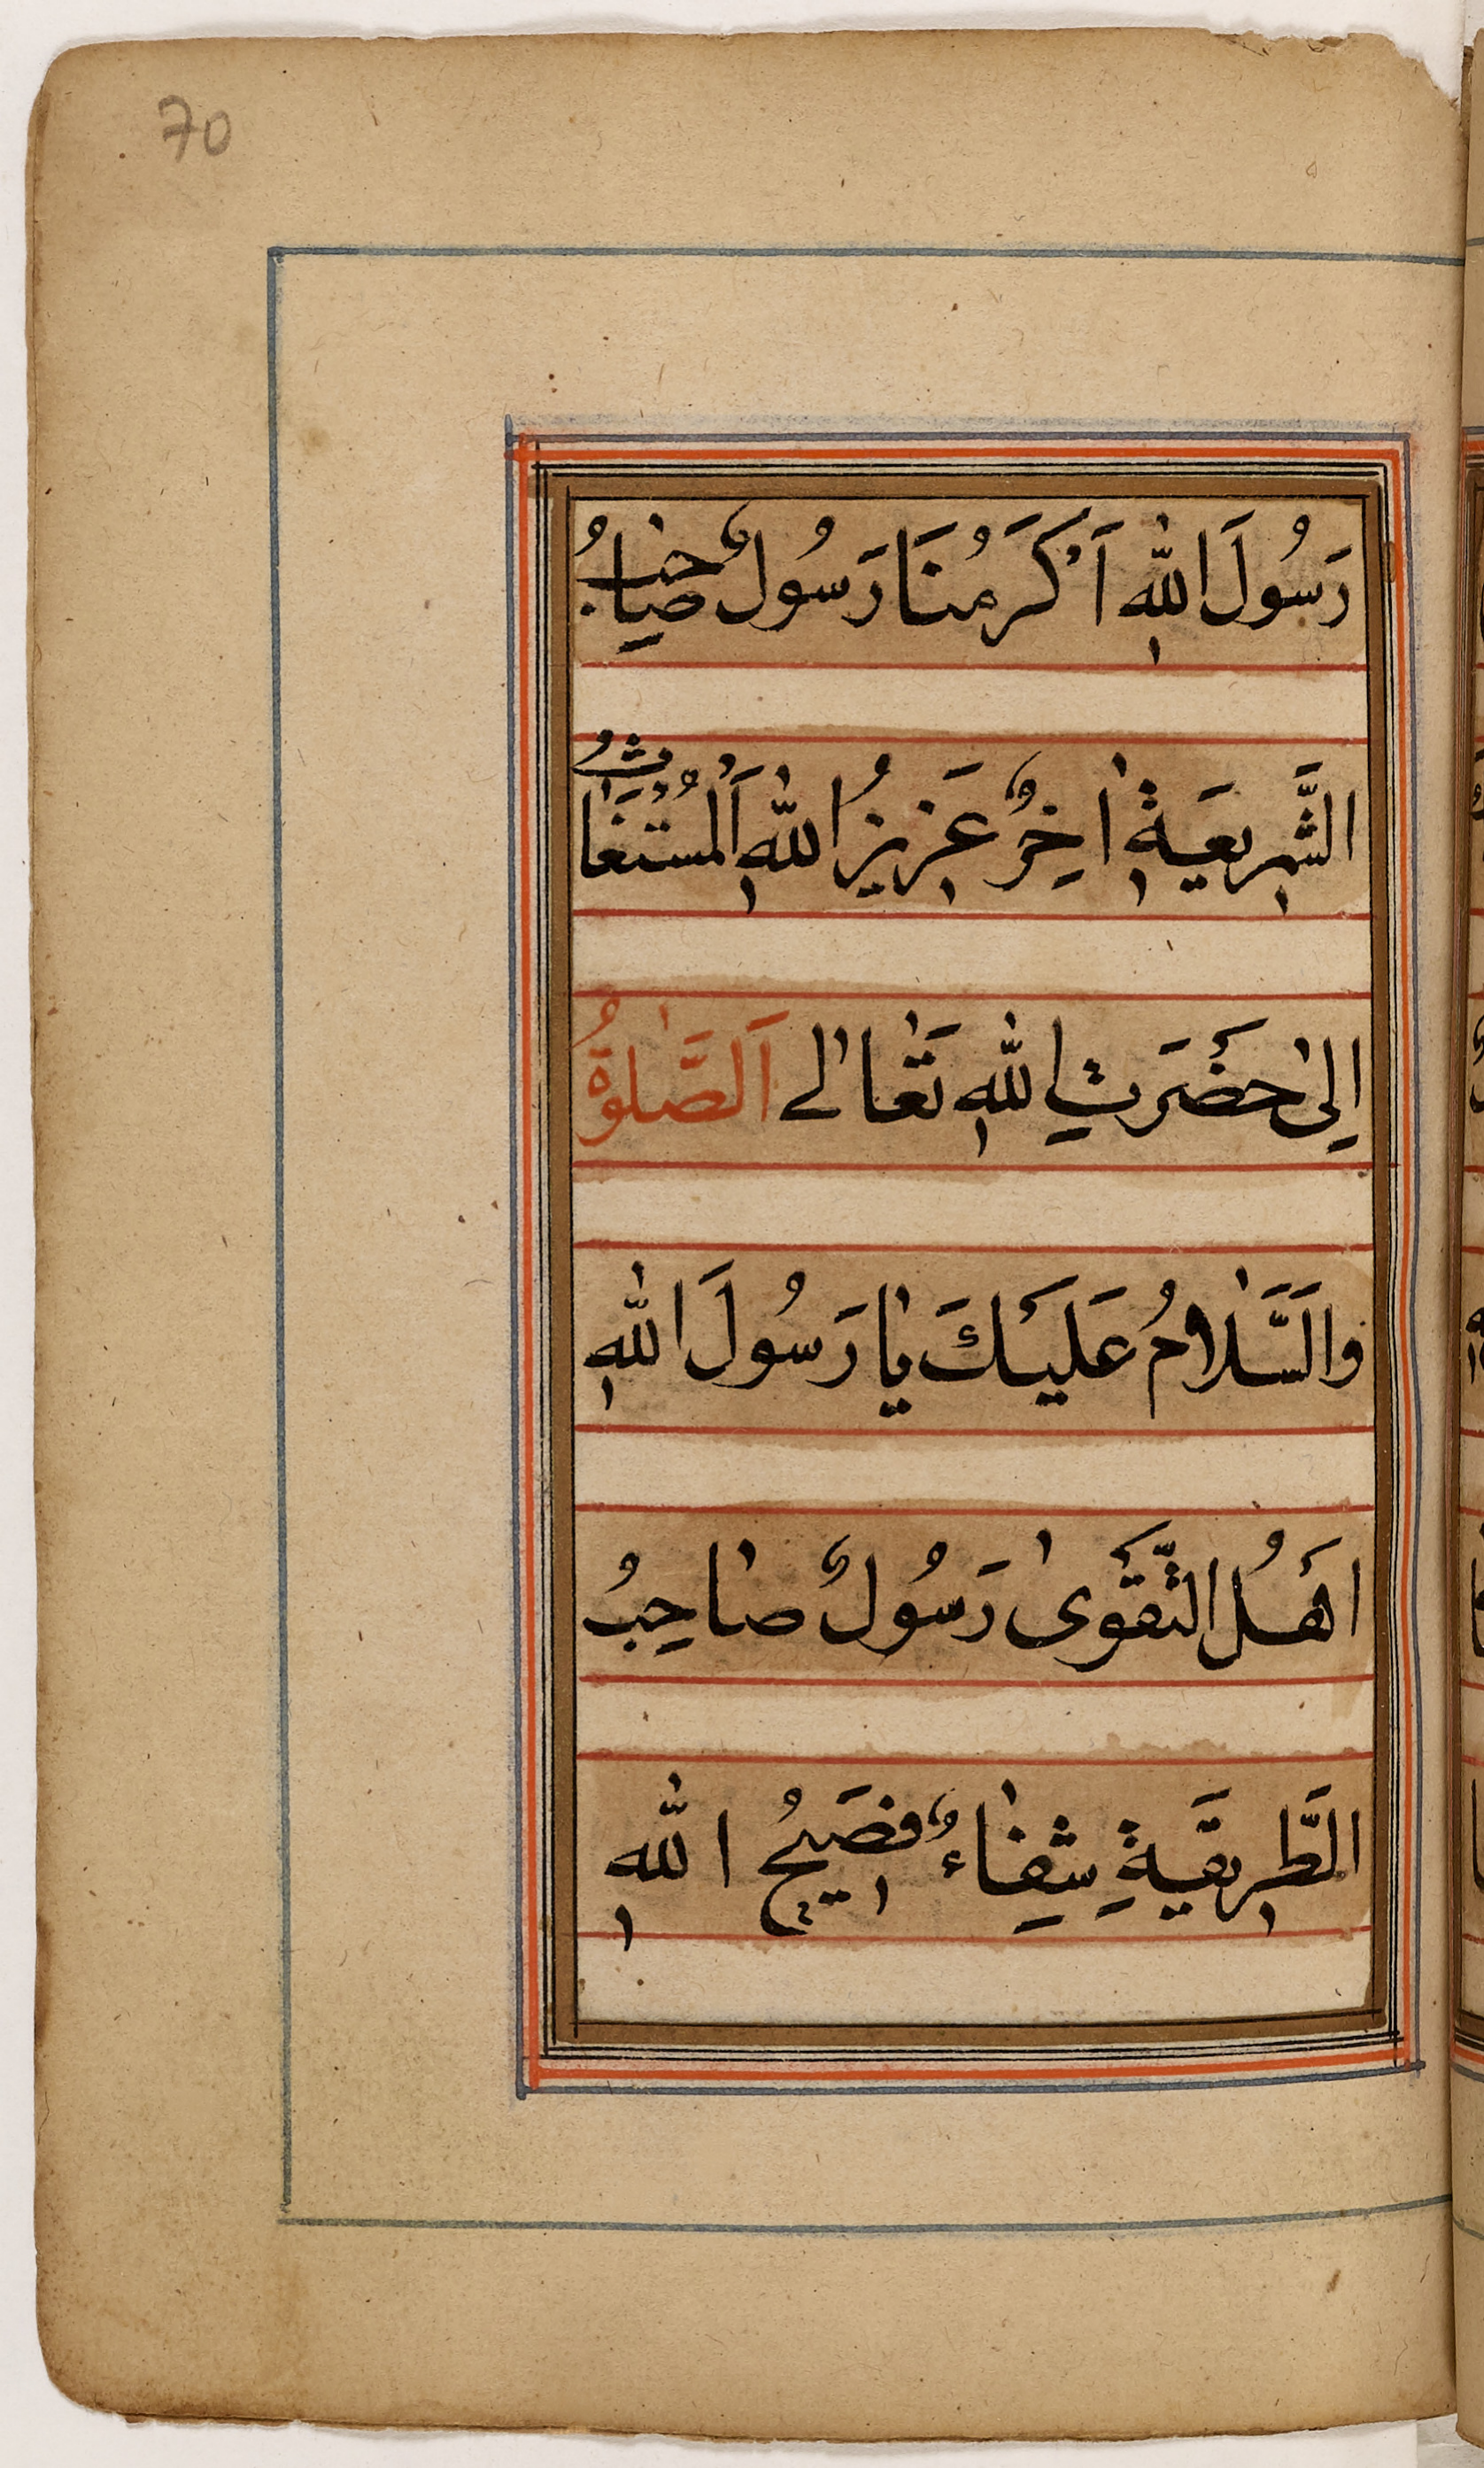 70
رَسُولَ اللهِ اَكْرَمُنَا رَسُولٌ صَاحِبُ
الشَّرِيعَةِ اٰخِرٌ عَزِيزُ اللهِ اَلْمُسْتَغَاثُ
اِلىٰ حَضْرَتِ اللهِ تَعَالٰے اَلصَّلٰوةُ
وَالسَّلَامُ عَلَيْكَ يَا رَسُولَ اللهِ
اَهْلُ التَّقْوىٰ رَسُولٌ صَاحِبُ
الطَّرِيقَةِ شِفَاءٌ فَصِيحُ اللهِ